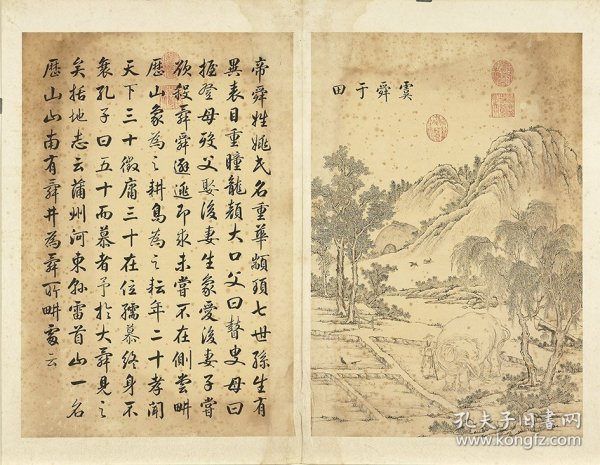 虞舜于田
帝舜姓姚氏名重華顓頊七世孫生有
異表目重瞳龍顏大口父曰瞽叟母曰
握登母歿父娶後妻生象愛後妻子嘗
欲殺舜舜即求未嘗不在側嘗畊
歷山象為之耕鳥為之耘年二十孝聞
天下三十徵庸三十在位孺慕終身不
衰孔子曰五十而慕者予於大舜見之
矣括地志云蒲州河東縣雷首山一名
歷山山南有舜井為舜所畊處云
孔夫子旧书网
www.kongfz.com